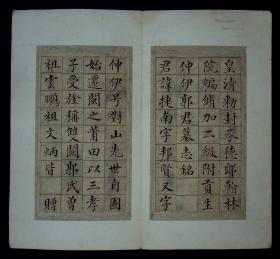 皇清勅封承德郎翰林
院編脩加二級附貢生
仲伊郭君墓志銘
君諱捷南字邦賢又字
仲伊号對山先世自固
始遷閩之莆田以三孝
子受旌稱雙闕郭氏曾
祖雲鵬祖文炳皆 贈